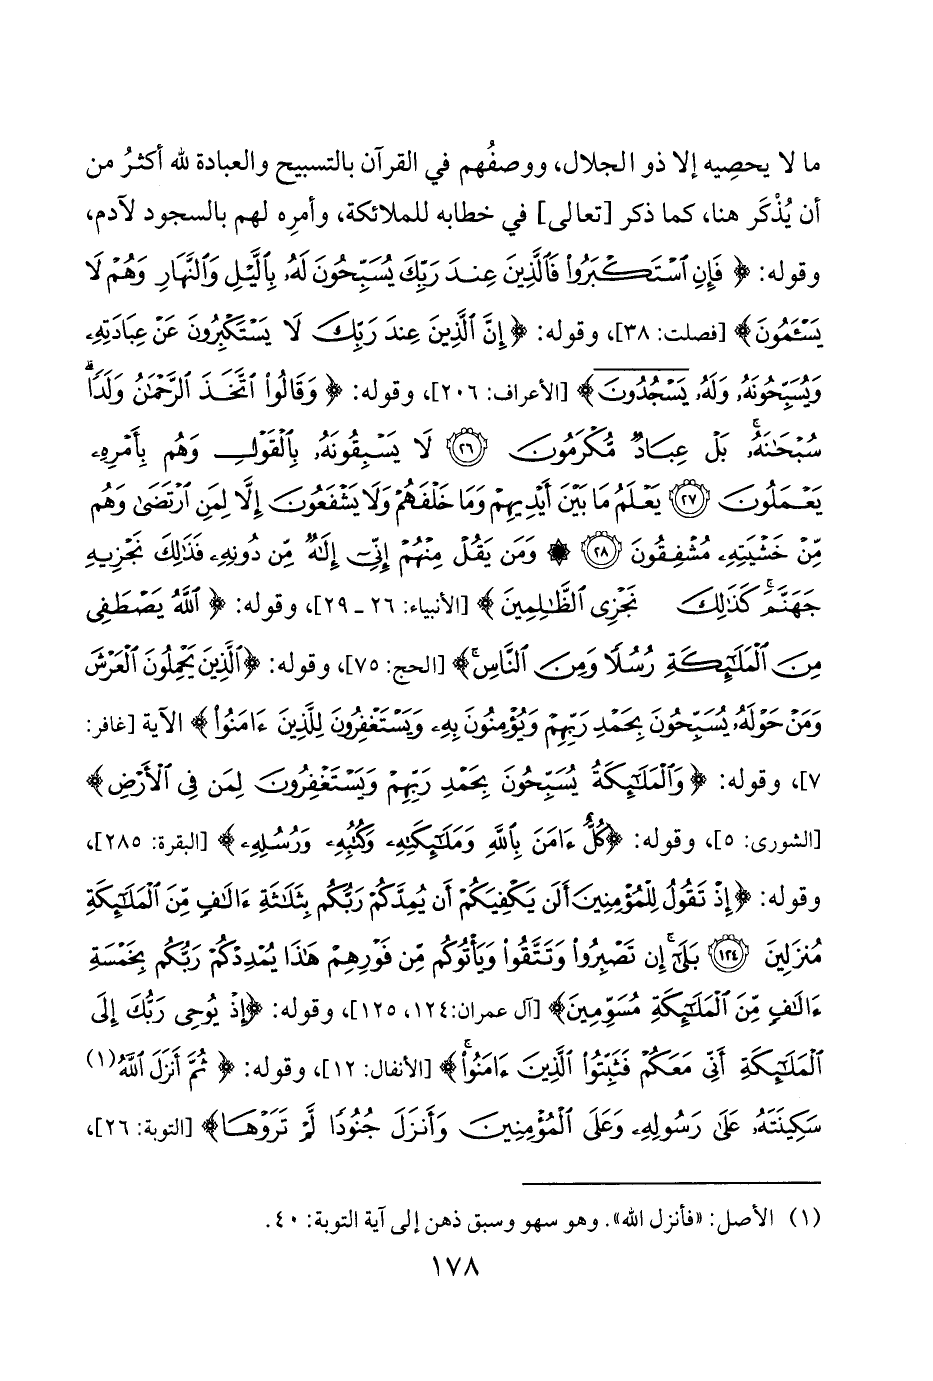 ما لا يحصِيه إلا ذو الجلال، ووصفُهم في القرآن بالتسبيح والعبادة لله أكثرُ من
أن يُذْكَر هنا، كما ذكر [تعالى] في خطابه للملائكة، وأمرِه لهم بالسجود لآدم،
وقوله: ﴿فَإِنِ ٱسْتَكْبَرُوا۟ فَٱلَّذِينَ عِندَ رَبِّكَ يُسَبِّحُونَ لَهُۥ بِٱلَّيْلِ وَٱلنَّهَارِ وَهُمْ لَا
يَسْـَٔمُونَ﴾ [فصلت: ٣٨]، وقوله: ﴿إِنَّ ٱلَّذِينَ عِندَ رَبِّكَ لَا يَسْتَكْبِرُونَ عَنْ عِبَادَتِهِۦ
وَيُسَبِّحُونَهُۥ وَلَهُۥ يَسْجُدُونَ﴾ [الأعراف: ٢٠٦]، وقوله: ﴿وَقَالُوا۟ ٱتَّخَذَ ٱلرَّحْمَٰنُ وَلَدًا ۗ
سُبْحَٰنَهُۥ ۚ بَلْ عِبَادٌ مُّكْرَمُونَ ٢٦ لَا يَسْبِقُونَهُۥ بِٱلْقَوْلِ وَهُم بِأَمْرِهِۦ
يَعْمَلُونَ ٢٧ يَعْلَمُ مَا بَيْنَ أَيْدِيهِمْ وَمَا خَلْفَهُمْ وَلَا يَشْفَعُونَ إِلَّا لِمَنِ ٱرْتَضَىٰ وَهُم
مِّنْ خَشْيَتِهِۦ مُشْفِقُونَ ٢٨ ۞ وَمَن يَقُلْ مِنْهُمْ إِنِّىٓ إِلَٰهٌ مِّن دُونِهِۦ فَذَٰلِكَ نَجْزِيهِ
جَهَنَّمَ ۚ كَذَٰلِكَ نَجْزِى ٱلظَّٰلِمِينَ﴾ [الأنبياء: ٢٦ - ٢٩]، وقوله: ﴿ٱللَّهُ يَصْطَفِى
مِنَ ٱلْمَلَٰٓئِكَةِ رُسُلًا وَمِنَ ٱلنَّاسِ ۚ﴾ [الحج: ٧٥]، وقوله: ﴿ٱلَّذِينَ يَحْمِلُونَ ٱلْعَرْشَ
وَمَنْ حَوْلَهُۥ يُسَبِّحُونَ بِحَمْدِ رَبِّهِمْ وَيُؤْمِنُونَ بِهِۦ وَيَسْتَغْفِرُونَ لِلَّذِينَ ءَامَنُوا۟﴾ الآية [غافر:
٧]، وقوله: ﴿وَٱلْمَلَٰٓئِكَةُ يُسَبِّحُونَ بِحَمْدِ رَبِّهِمْ وَيَسْتَغْفِرُونَ لِمَن فِى ٱلْأَرْضِ﴾
[الشورى: ٥]، وقوله: ﴿كُلٌّ ءَامَنَ بِٱللَّهِ وَمَلَٰٓئِكَتِهِۦ وَكُتُبِهِۦ وَرُسُلِهِۦ﴾ [البقرة: ٢٨٥]،
وقوله: ﴿إِذْ تَقُولُ لِلْمُؤْمِنِينَ أَلَن يَكْفِيَكُمْ أَن يُمِدَّكُمْ رَبُّكُم بِثَلَٰثَةِ ءَالَٰفٍ مِّنَ ٱلْمَلَٰٓئِكَةِ
مُنزَلِينَ ١٢٤ بَلَىٰٓ ۚ إِن تَصْبِرُوا۟ وَتَتَّقُوا۟ وَيَأْتُوكُم مِّن فَوْرِهِمْ هَٰذَا يُمْدِدْكُمْ رَبُّكُم بِخَمْسَةِ
ءَالَٰفٍ مِّنَ ٱلْمَلَٰٓئِكَةِ مُسَوِّمِينَ﴾ [آل عمران: ١٢٤، ١٢٥]، وقوله: ﴿إِذْ يُوحِى رَبُّكَ إِلَى
ٱلْمَلَٰٓئِكَةِ أَنِّى مَعَكُمْ فَثَبِّتُوا۟ ٱلَّذِينَ ءَامَنُوا۟ ۚ﴾ [الأنفال: ١٢]، وقوله: ﴿ثُمَّ أَنزَلَ ٱللَّهُ(١)
سَكِينَتَهُۥ عَلَىٰ رَسُولِهِۦ وَعَلَى ٱلْمُؤْمِنِينَ وَأَنزَلَ جُنُودًا لَّمْ تَرَوْهَا﴾ [التوبة: ٢٦]،
(١) الأصل: «فأنزل الله». وهو سهو وسبق ذهن إلى آية التوبة: ٤٠.
١٧٨